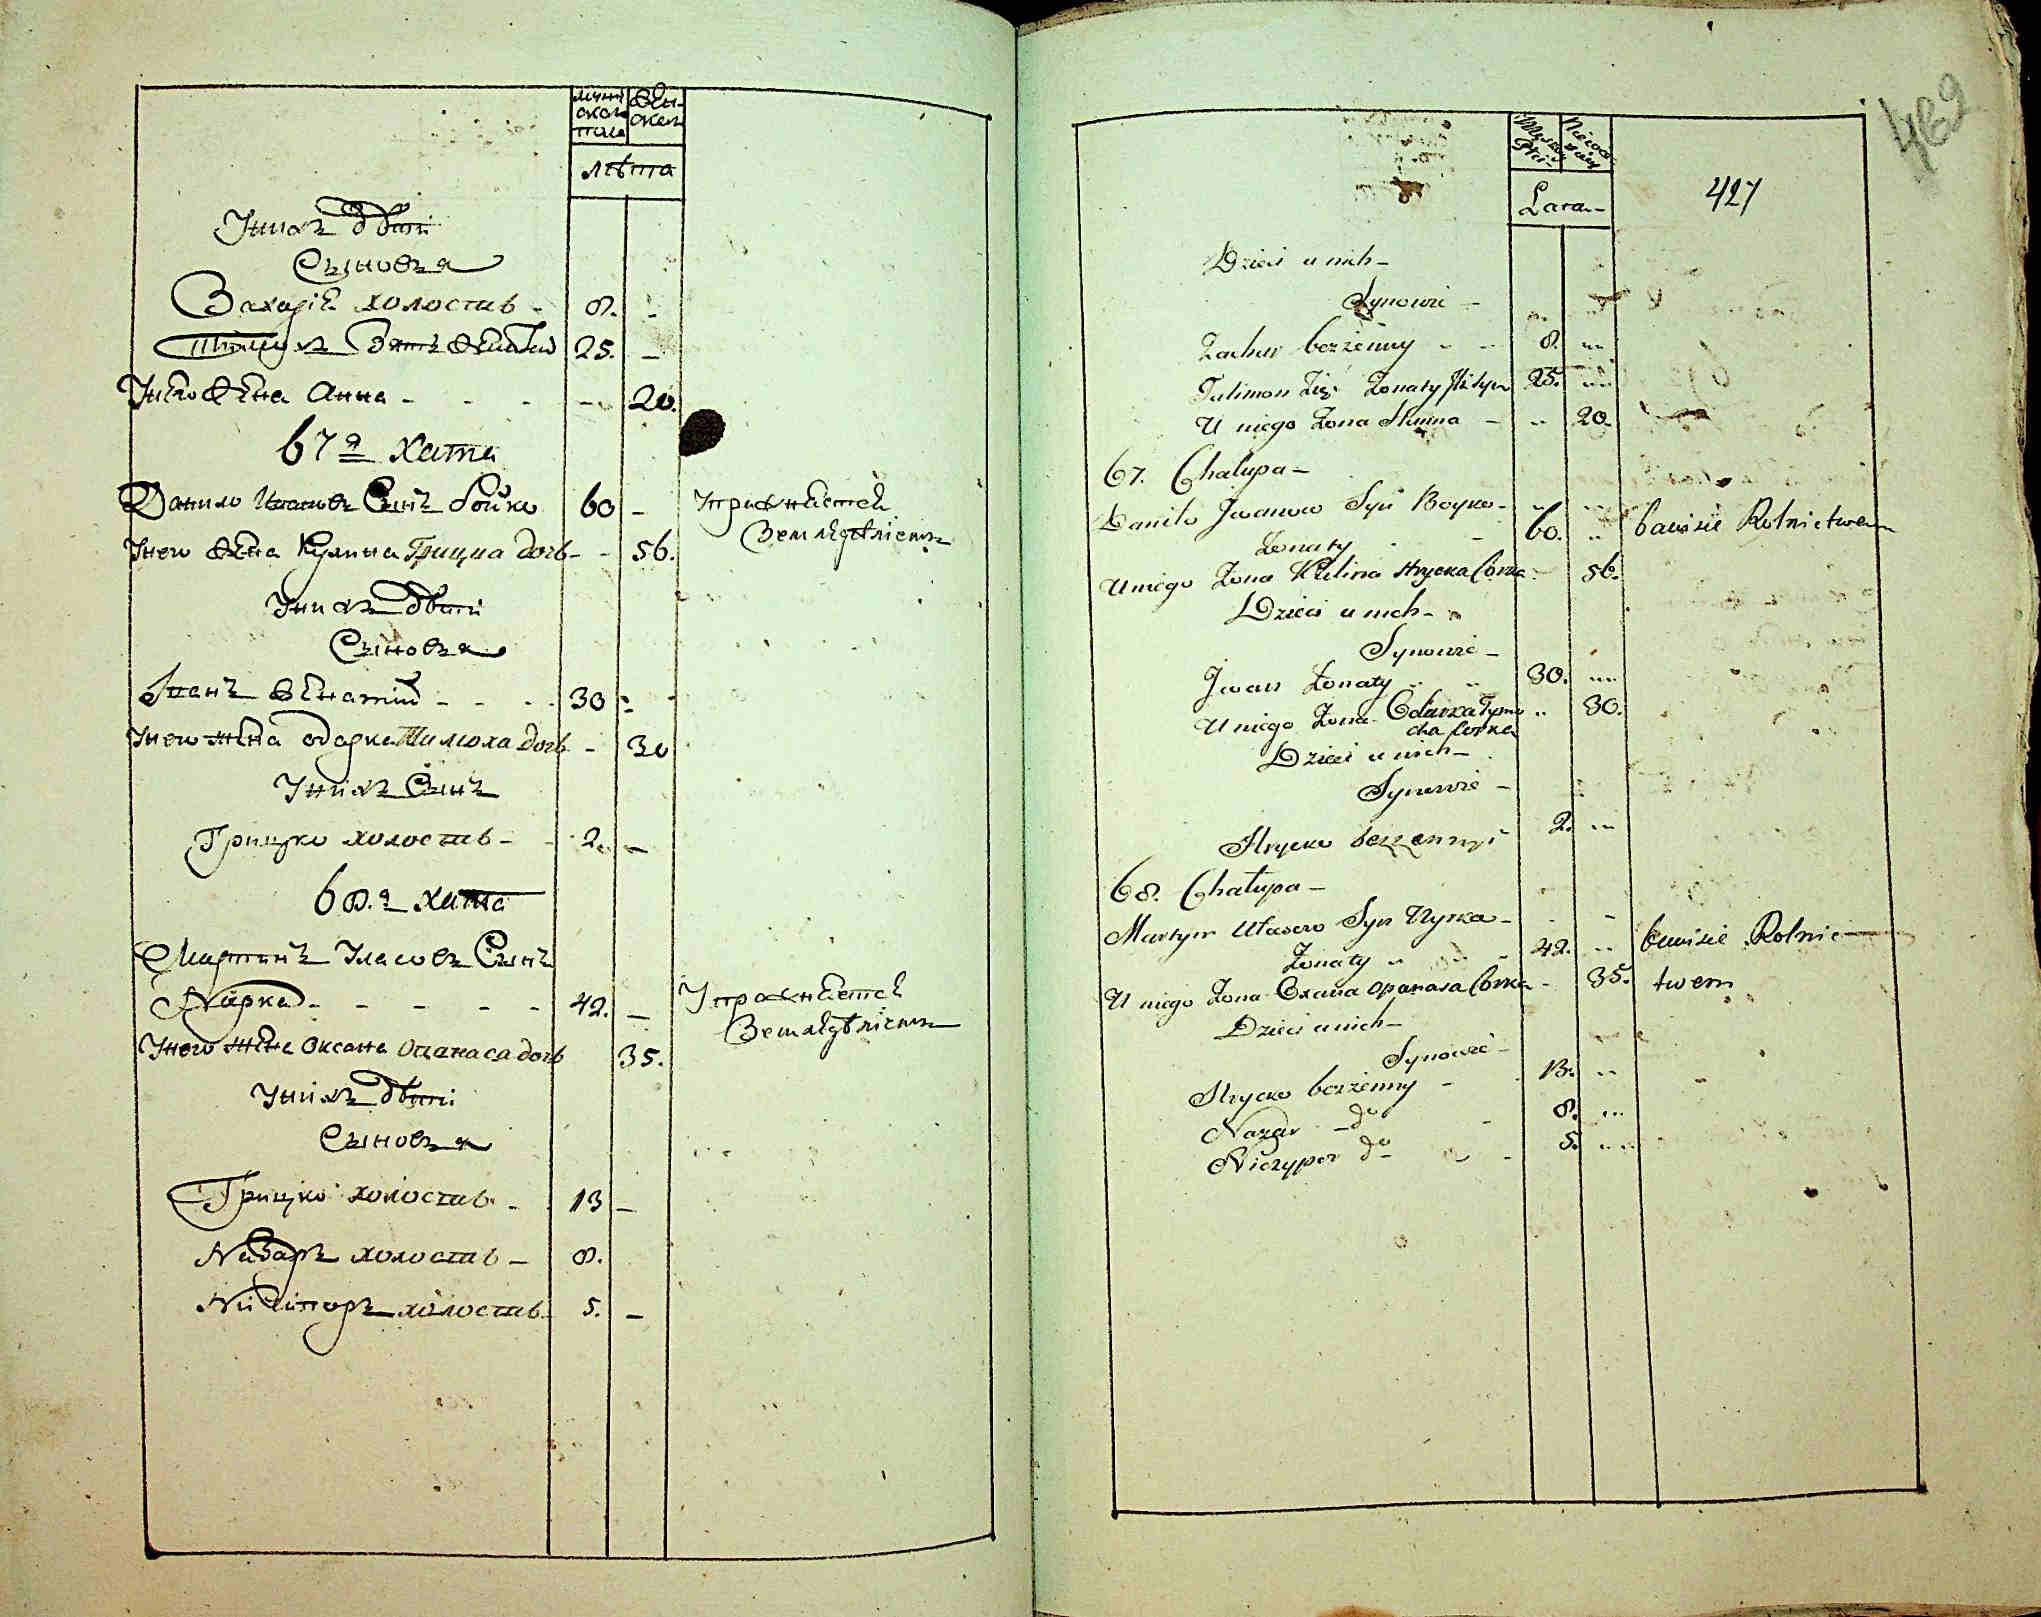 мужеска пола
женска
лѣта
У нихъ дѣти
Сыновья
Захарій холоство - 8. -
женатій 25. -
У него жена Анна - - - - 20.
67я хата
Данило Ивановъ Сынъ Бойко 60 - Упражняется
Земледѣліемъ
У него жена Кулина Грицка дочь - - 56.
У нихъ дѣти
Сыновья
Иванъ женатій - - - - 30 -
У него жена Одарка Тимоха дочь - 30
У нихъ Сынъ
Грицко холоство - - 2. -
68.я хата
Мартинъ Уласовъ Сынъ
Нирка - - - - - 42. - Упражняется
Земледѣліемъ
У него жена Оксана Опанаса дочь 35.
У нихъ дѣти
Сыновья
Грицко холоство - 13 -
Назаръ холоство - 8.
Ничіпоръ холоство 5. -
469
427
Lata
Dzieci u nich -
Synowie -
Zachar bezżenny - - 8. "
Zięć Żonaty 25. "
U niego Żona Hanna - " 20.
67. Chałupa -
Daniło Iwanow Syn Boyko - bawi się Rolnictwem
Żonaty - 60. "
U niego Żona Kulina Hrycka Corka - 56.
Dzieci u nich -
Synowie -
Jwan Żonaty " " 30. "
U niego Żona Odarka Tymo " 30.
cha Corka
Dzieci u nich -
Synowie -
Hrycko bezżenny 2. "
68. Chałupa -
Martyn Ułasow Syn Nyrka - bawi się Rolnic
Żonaty " 42. "
U niego Żona Oxana Opanasa Corka - 35. twem
Dzieci u nich -
Synowie -
Hrycko bezżenny - 13. "
Nazar - do - 8. "
Niczypor do - 5. "